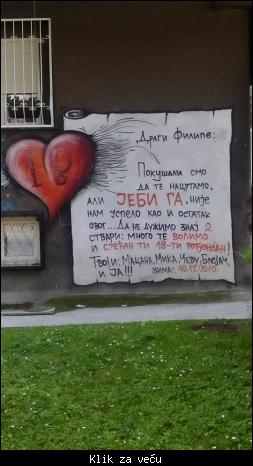 18
Драги Филипе:
Покушали смо
да те нацртамо,
али ЈЕБИ ГА, није
нам успело као и остатак
овог... Да не дужимо знај 2
ствари: много те волимо
и срећан ти 18-ти рођендан!
Твоји: Мацана, Мика,
и ЈА!!! зима: 10.12.2010.
Klik za veću